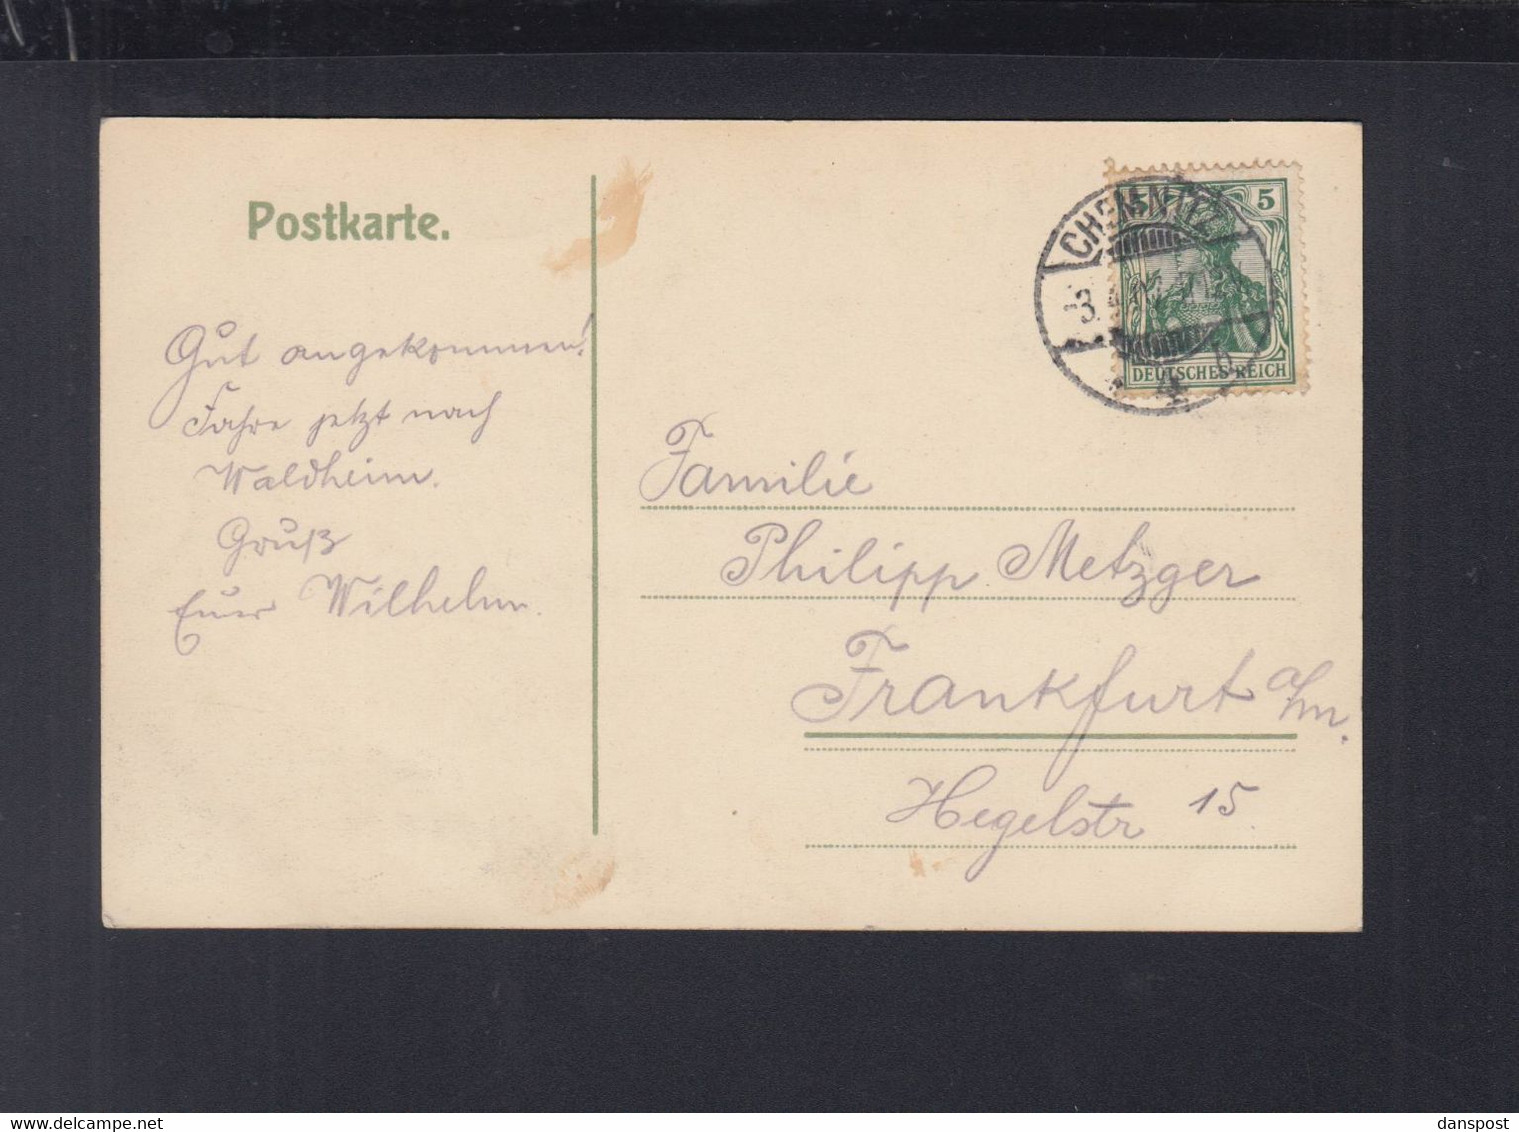 Postkarte.
Gut angekommen!
Fahre jetzt nach
Waldheim.
Gruß
Euer Wilhelm.
CHEMNITZ
5 5
DEUTSCHES REICH
Familie
Philipp Metzger
Frankfurt a/m.
Hegelstr 15
www.delcampe.net
danspost